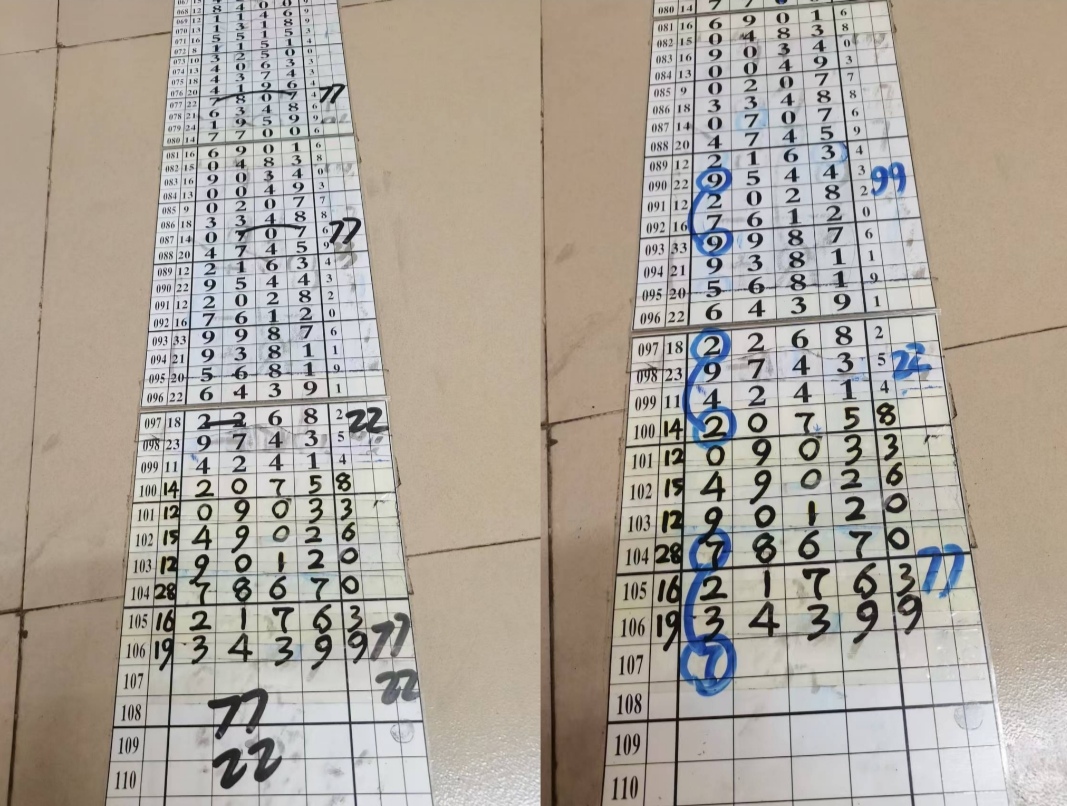 068 12 8 4 0 0
069 12 1 1 4 6 9
070 13 1 3 1 8
071 16 5 5 1 5
072 8 1 1 5 1
073 10 3 2 5 0
074 13 4 0 6 3
075 18 4 3 7 4
076 20 4 1 9 6 4 77
077 22 7 8 0 7
078 21 6 3 4 8 6
079 24 1 9 5 9
080 14 7 7 0 0 6
081 16 6 9 0 1 6
082 15 0 4 8 3 8
083 16 9 0 3 4 0
084 13 0 0 4 9 3
085 9 0 2 0 7 7
086 18 3 3 4 8 8
087 14 0 7 0 7 6 77
088 20 4 7 4 5 9
089 12 2 1 6 3 4
090 22 9 5 4 4 3
091 12 2 0 2 8 2
092 16 7 6 1 2 0
093 33 9 9 8 7 6
094 21 9 3 8 1 1
095 20 5 6 8 1 9
096 22 6 4 3 9 1
097 18 2 2 6 8 2 22
098 23 9 7 4 3 5
099 11 4 2 4 1 4
100 14 2 0 7 5 8
101 12 0 9 0 3 3
102 15 4 9 0 2 6
103 12 9 0 1 2 0
104 28 7 8 6 7 0
105 16 2 1 7 6 3
106 19 3 4 3 9 9 77
107 22
108 77
109 22
110
080 14 7 7
081 16 6 9 0 1 6
082 15 0 4 8 3 8
083 16 9 0 3 4 0
084 13 0 0 4 9 3
085 9 0 2 0 7 7
086 18 3 3 4 8 8
087 14 0 7 0 7 6
088 20 4 7 4 5 9
089 12 2 1 6 3 4
090 22 9 5 4 4 3 99
091 12 2 0 2 8 2
092 16 7 6 1 2 0
093 33 9 9 8 7 6
094 21 9 3 8 1 1
095 20 5 6 8 1 9
096 22 6 4 3 9 1
097 18 2 2 6 8 2
098 23 9 7 4 3 5 22
099 11 4 2 4 1 4
100 14 2 0 7 5 8
101 12 0 9 0 3 3
102 15 4 9 0 2 6
103 12 9 0 1 2 0
104 28 7 8 6 7 0
105 16 2 1 7 6 3 77
106 19 3 4 3 9 9
107 7
108
109
110